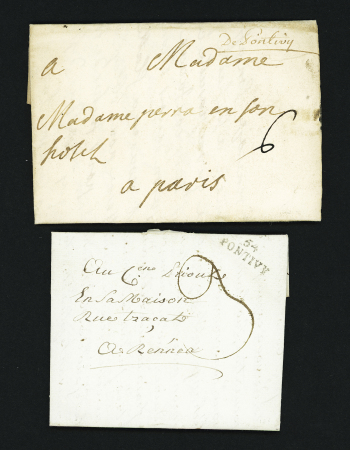 De Pontivy
a Madame
Madame perra en son
hotel 6
a paris
64
PONTIVY
Au Cen
En Sa Maison
Rue
A Rennes